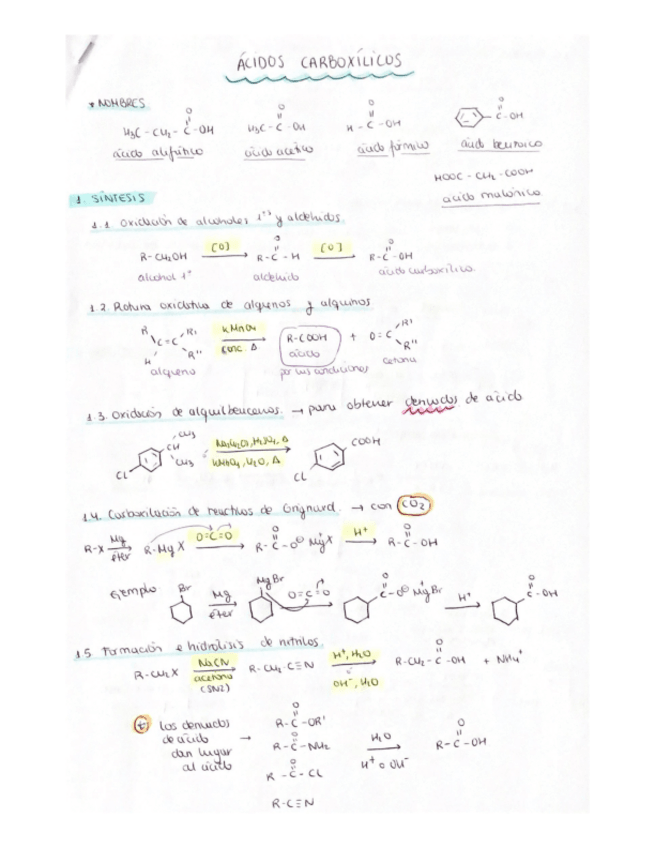 ÁCIDOS CARBOXÍLICOS
* NOMBRES
H3C - CH2 - C - OH
O
H3C - C - OH
O
H - C - OH
O
C - OH
O
ácido alifático ácido acético ácido fórmico ácido benzoico
HOOC - CH2 - COOH
ácido malónico
1. SÍNTESIS
1.1. Oxidación de alcoholes 1ºs y aldehídos.
R - CH2OH [O] R - C - H [O] R - C - OH
O O
alcohol 1º aldehido ácido carboxílico
1.2. Rotura oxidativa de alquenos y alquinos
R R' H R'' C=C KMnO4 conc. Δ R-COOH + O=C R' R''
ácido
alqueno por las condiciones cetona
1.3. Oxidación de alquilbencenos. → para obtener derivados de ácido
CH3 CH CH3 Cl Na2Cr2O7, H2SO4, Δ COOH
KMnO4, H2O, Δ Cl
1.4. Carboxilación de reactivos de Grignard → con CO2
R-X Mg éter R-MgX O=C=O R - C - O⊖ MgX H+ R - C - OH
O O
Ejemplo Br Mg éter MgBr O=C=O C - O⊖ MgBr H+ C - OH
O O
1.5. Formación e hidrólisis de nitrilos.
R-CH2X NaCN acetona (SN2) R-CH2-C≡N H+, H2O OH-, H2O R-CH2-C-OH + NH4+
O
Los derivados
de ácido
dan lugar
al ácido
→
R - C - OR'
O
R - C - NH2
O
R - C - Cl
O
R-C≡N
H2O
H+ o OH-
R - C - OH
O